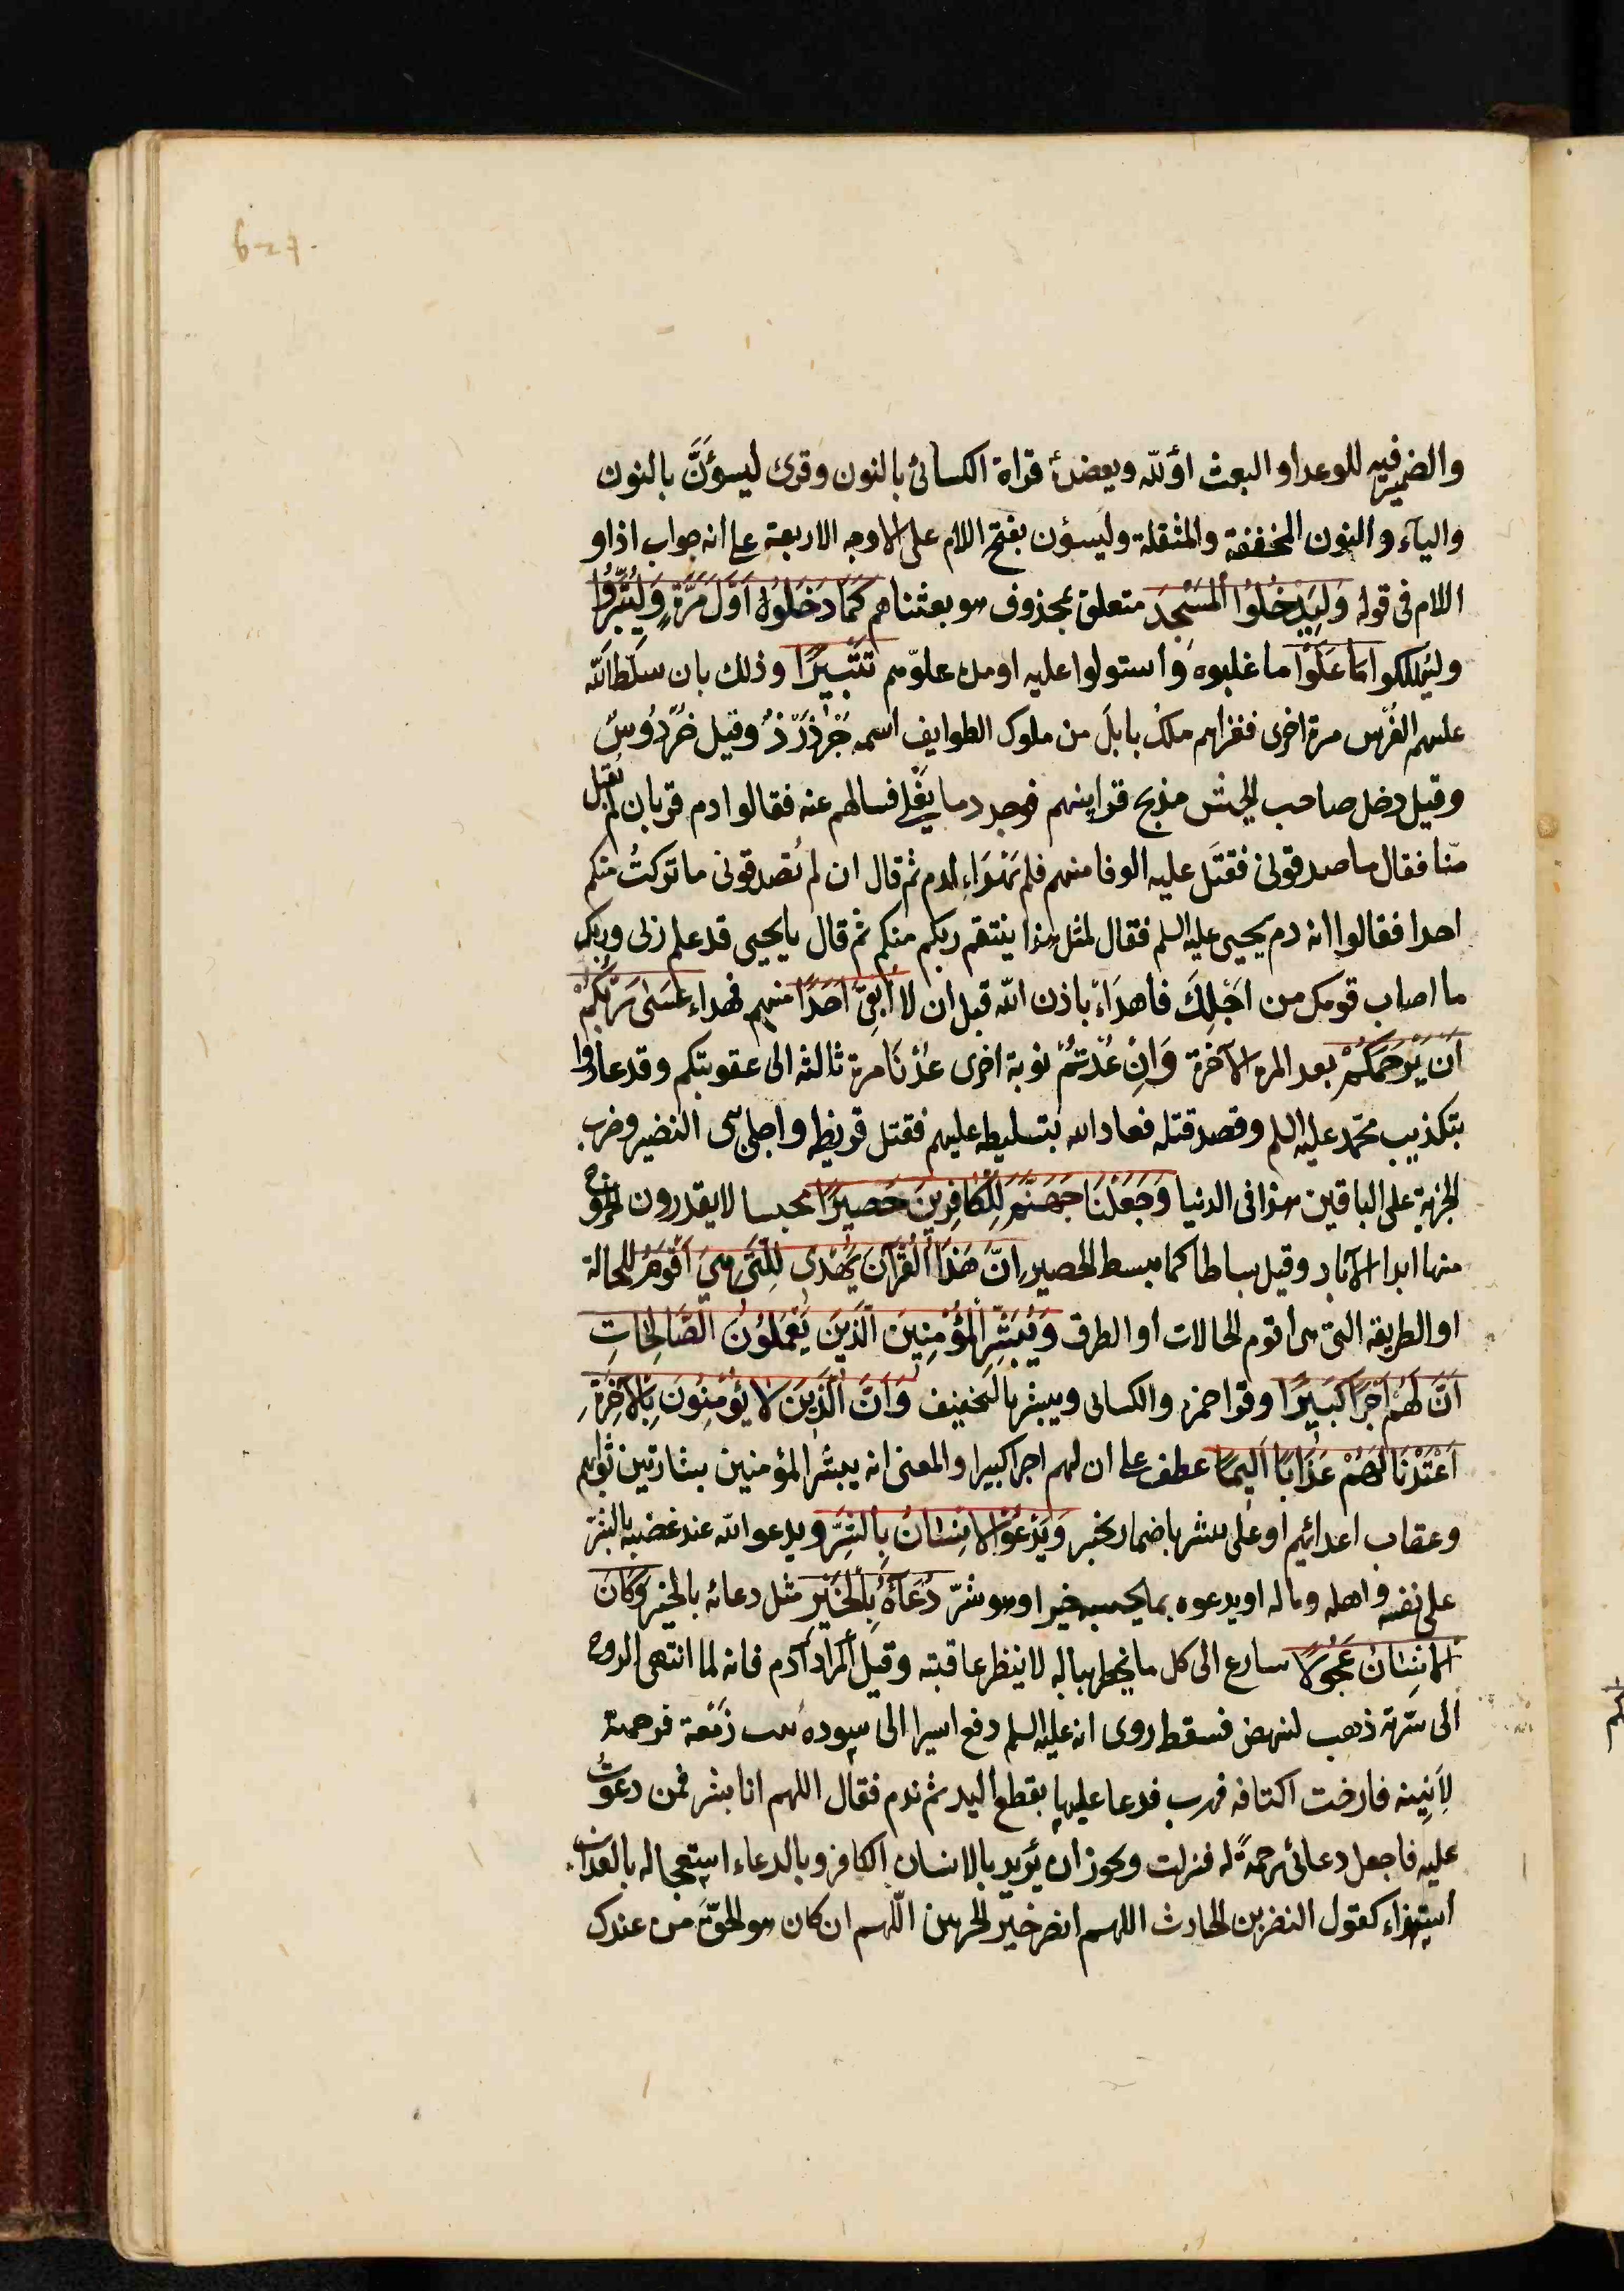 والضمير فيه للوعد او البعث او لله ويعضده قراة الكسائي بالنون وقرى ليسؤنّ بالنون
والياء والنون المخففة والمثقلة وليسؤن بفتح اللام على الاوجه الاربعة على انه جواب اذا و
اللام في قوله وَلِيَدْخُلُوا الْمَسْجِدَ متعلق بمحذوف هو بعثناهم كَمَا دَخَلُوهُ اَوَّلَ مَرَّةٍ وَلِيُتَبِّرُوا
وليُهلكوا مَا عَلَوْا ما غلبوه واستولوا عليه او مدة علوّهم تَتْبِيرًا وذلك بان سلّط الله
عليهم الفُرْس مرة اخرى فغزاهم ملكُ بابلَ من ملوك الطوايف اسمه جَرْدَرَذ وقيل خَرْدُوسُ
وقيل دخل صاحب الجيش مذبح قرابينهم فوجد دما يغلي فسالهم عنه فقالوا دم قربان لم يُقبل
منّا فقال ما صدقوني فقتَل عليه الوفا منهم فلم يَهْدَاء الدم ثم قال ان لم تصدقوني ما تركتُ منكم
احدا فقالوا انه دم يحيى عليه السلم فقال لمثل هذا ينتقم ربكم منكم ثم قال يا يحيى قد علم ربي وربك
ما اصاب قومك من اجْلِكَ فاهدَاءْ باذن الله قبل ان لا اُبْقِيَ اَحَدًا منهم فهداء عَسَى رَبُّكُمْ
اَنْ يَرْحَمَكُمْ بعد المرة الآخرة وَاِنْ عُدْتُمْ نوبة اخرى عُدْنَا مرة ثالثة الى عقوبتكم وقد عادوا
بتكذيب محمّد عليه السلم وقصد قتله فعاد الله بتسليطه عليهم فقتل قريظة واجلى بني النضير وضرب
الجزية على الباقين هذا في الدنيا وَجَعَلْنَا جَهَنَّمَ لِلْكَافِرِينَ حَصِيرًا محبسا لا يقدرون الخروج
منها ابدا الآباد وقيل بساطا كما يبسط الحصير اِنَّ هَذَا الْقُرْآنَ يَهْدِي لِلَّتِي هِيَ اَقْوَمُ للحالة
او الطريقة التي هي اقوم الحالات او الطرق وَيُبَشِّرُ الْمُؤْمِنِينَ الَّذِينَ يَعْمَلُونَ الصَّالِحَاتِ
اَنَّ لَهُمْ اَجْرًا كَبِيرًا وقرا حمزة والكسائي ويبشر بالتخفيف وَاَنَّ الَّذِينَ لَا يُؤْمِنُونَ بِالْآخِرَةِ
اَعْتَدْنَا لَهُمْ عَذَابًا اَلِيمًا عطف على ان لهم اجرا كبيرا والمعنى انه يبشر المؤمنين بشارتين ثوابهم
وعقاب اعدائهم او على يبشر باضمار يخبر وَيَدْعُ الْاِنْسَانُ بِالشَّرِّ ويدعو الله عند غضبه بالشرّ
على نفسه واهله وماله او يدعوه بما يحسبه خيرا وهو شرّ دُعَاءَهُ بِالْخَيْرِ مثل دعائه بالخير وَكَانَ
الْاِنْسَانُ عَجُولًا سارع الى كل ما يخطر بباله لا ينظر عاقبته وقيل المراد آدم فانه لما انتهى الروح
الى سُرّته ذهب لينهض فسقط روى انه عليه السلم دفع اسيرا الى سودة بنت زَمْعة فرحمته
لِاَنِينه فارخت اكتافه فهرب فدعا عليها بقطع اليد ثم ندم فقال اللهم انا بشر فمن دعوتُ
عليه فاجعل دعائي رحمةً له فنزلت ويجوز ان يُريد بالانسان الكافر وبالدعاء استعجاله بالعذاب
استهزاء كقول النضر بن الحارث اللهم انصر خير الحزبين اللّهم ان كان هو الحقّ من عندك